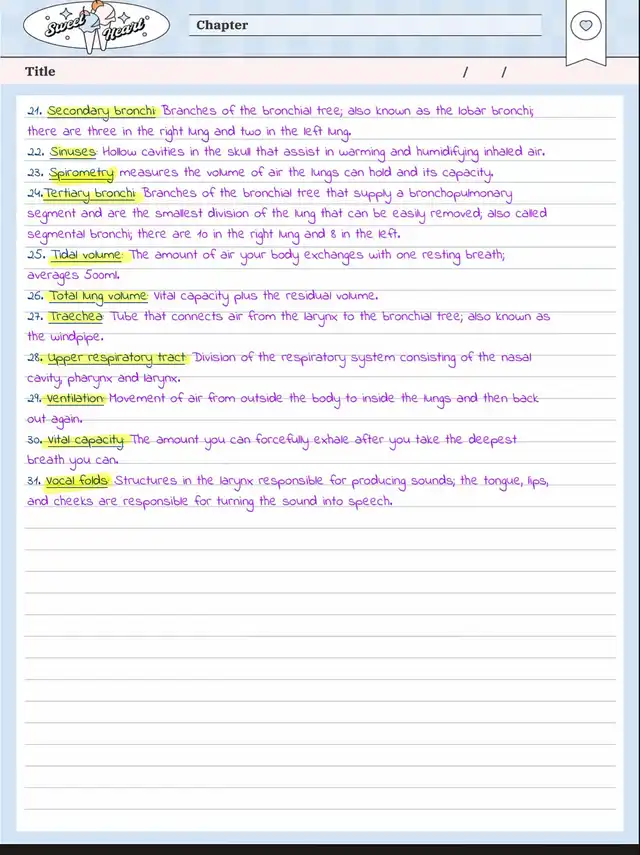 Sweet Heart
Chapter
Title / /
21. Secondary bronchi: Branches of the bronchial tree; also known as the lobar bronchi;
there are three in the right lung and two in the left lung.
22. Sinuses: Hollow cavities in the skull that assist in warming and humidifying inhaled air.
23. Spirometry: measures the volume of air the lungs can hold and its capacity.
24. Tertiary bronchi: Branches of the bronchial tree that supply a bronchopulmonary
segment and are the smallest division of the lung that can be easily removed; also called
segmental bronchi; there are 10 in the right lung and 8 in the left.
25. Tidal volume: The amount of air your body exchanges with one resting breath;
averages 500ml.
26. Total lung volume: Vital capacity plus the residual volume.
27. Traechea: Tube that connects air from the larynx to the bronchial tree; also known as
the windpipe.
28. Upper respiratory tract: Division of the respiratory system consisting of the nasal
cavity, pharynx and larynx.
29. Ventilation: Movement of air from outside the body to inside the lungs and then back
out again.
30. Vital capacity: The amount you can forcefully exhale after you take the deepest
breath you can.
31. Vocal folds: Structures in the larynx responsible for producing sounds; the tongue, lips,
and cheeks are responsible for turning the sound into speech.